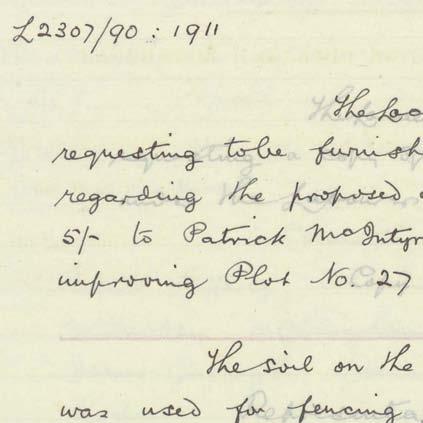 L2307/90 : 1911
The Loc
requesting to be furnish
regarding the proposed
5/- to Patrick McIntyr
improving Plot No. 27
The soil on the
was used for fencing